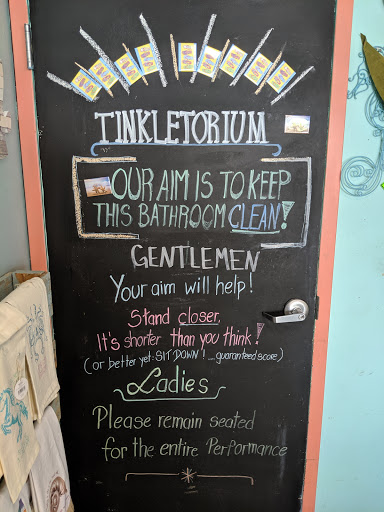 TINKLETORIUM
OUR AIM IS TO KEEP
THIS BATHROOM CLEAN!
GENTLEMEN
Your aim will help!
Stand closer,
It's shorter than you think!
(or better yet: SIT DOWN! _guaranteed score)
Ladies
Please remain seated
for the entire Performance